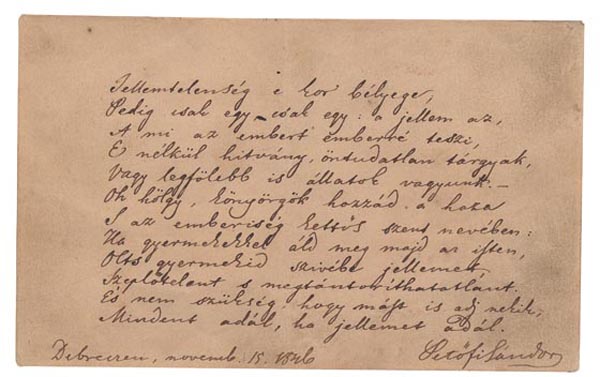 Jellemtelenség e kor bélyege,
Pedig csak egy - csak egy: a jellem az,
A mi az embert emberré teszi,
E nélkül hitvány, öntudatlan tárgyak,
Vagy legfölebb is állatok vagyunk. –
Oh hölgy, könyörgök hozzád a haza
S az emberiség kettős szent nevében:
Ha gyermekekkel áld meg majd az isten,
Olts gyermekid szivébe jellemet,
Szeplőtelent s megtántorithatatlant.
És nem szükség, hogy mást is adj nekik,
Mindent adál, ha jellemet adál.
Debreczen, novemb. 15. 1846
Petőfi Sándor